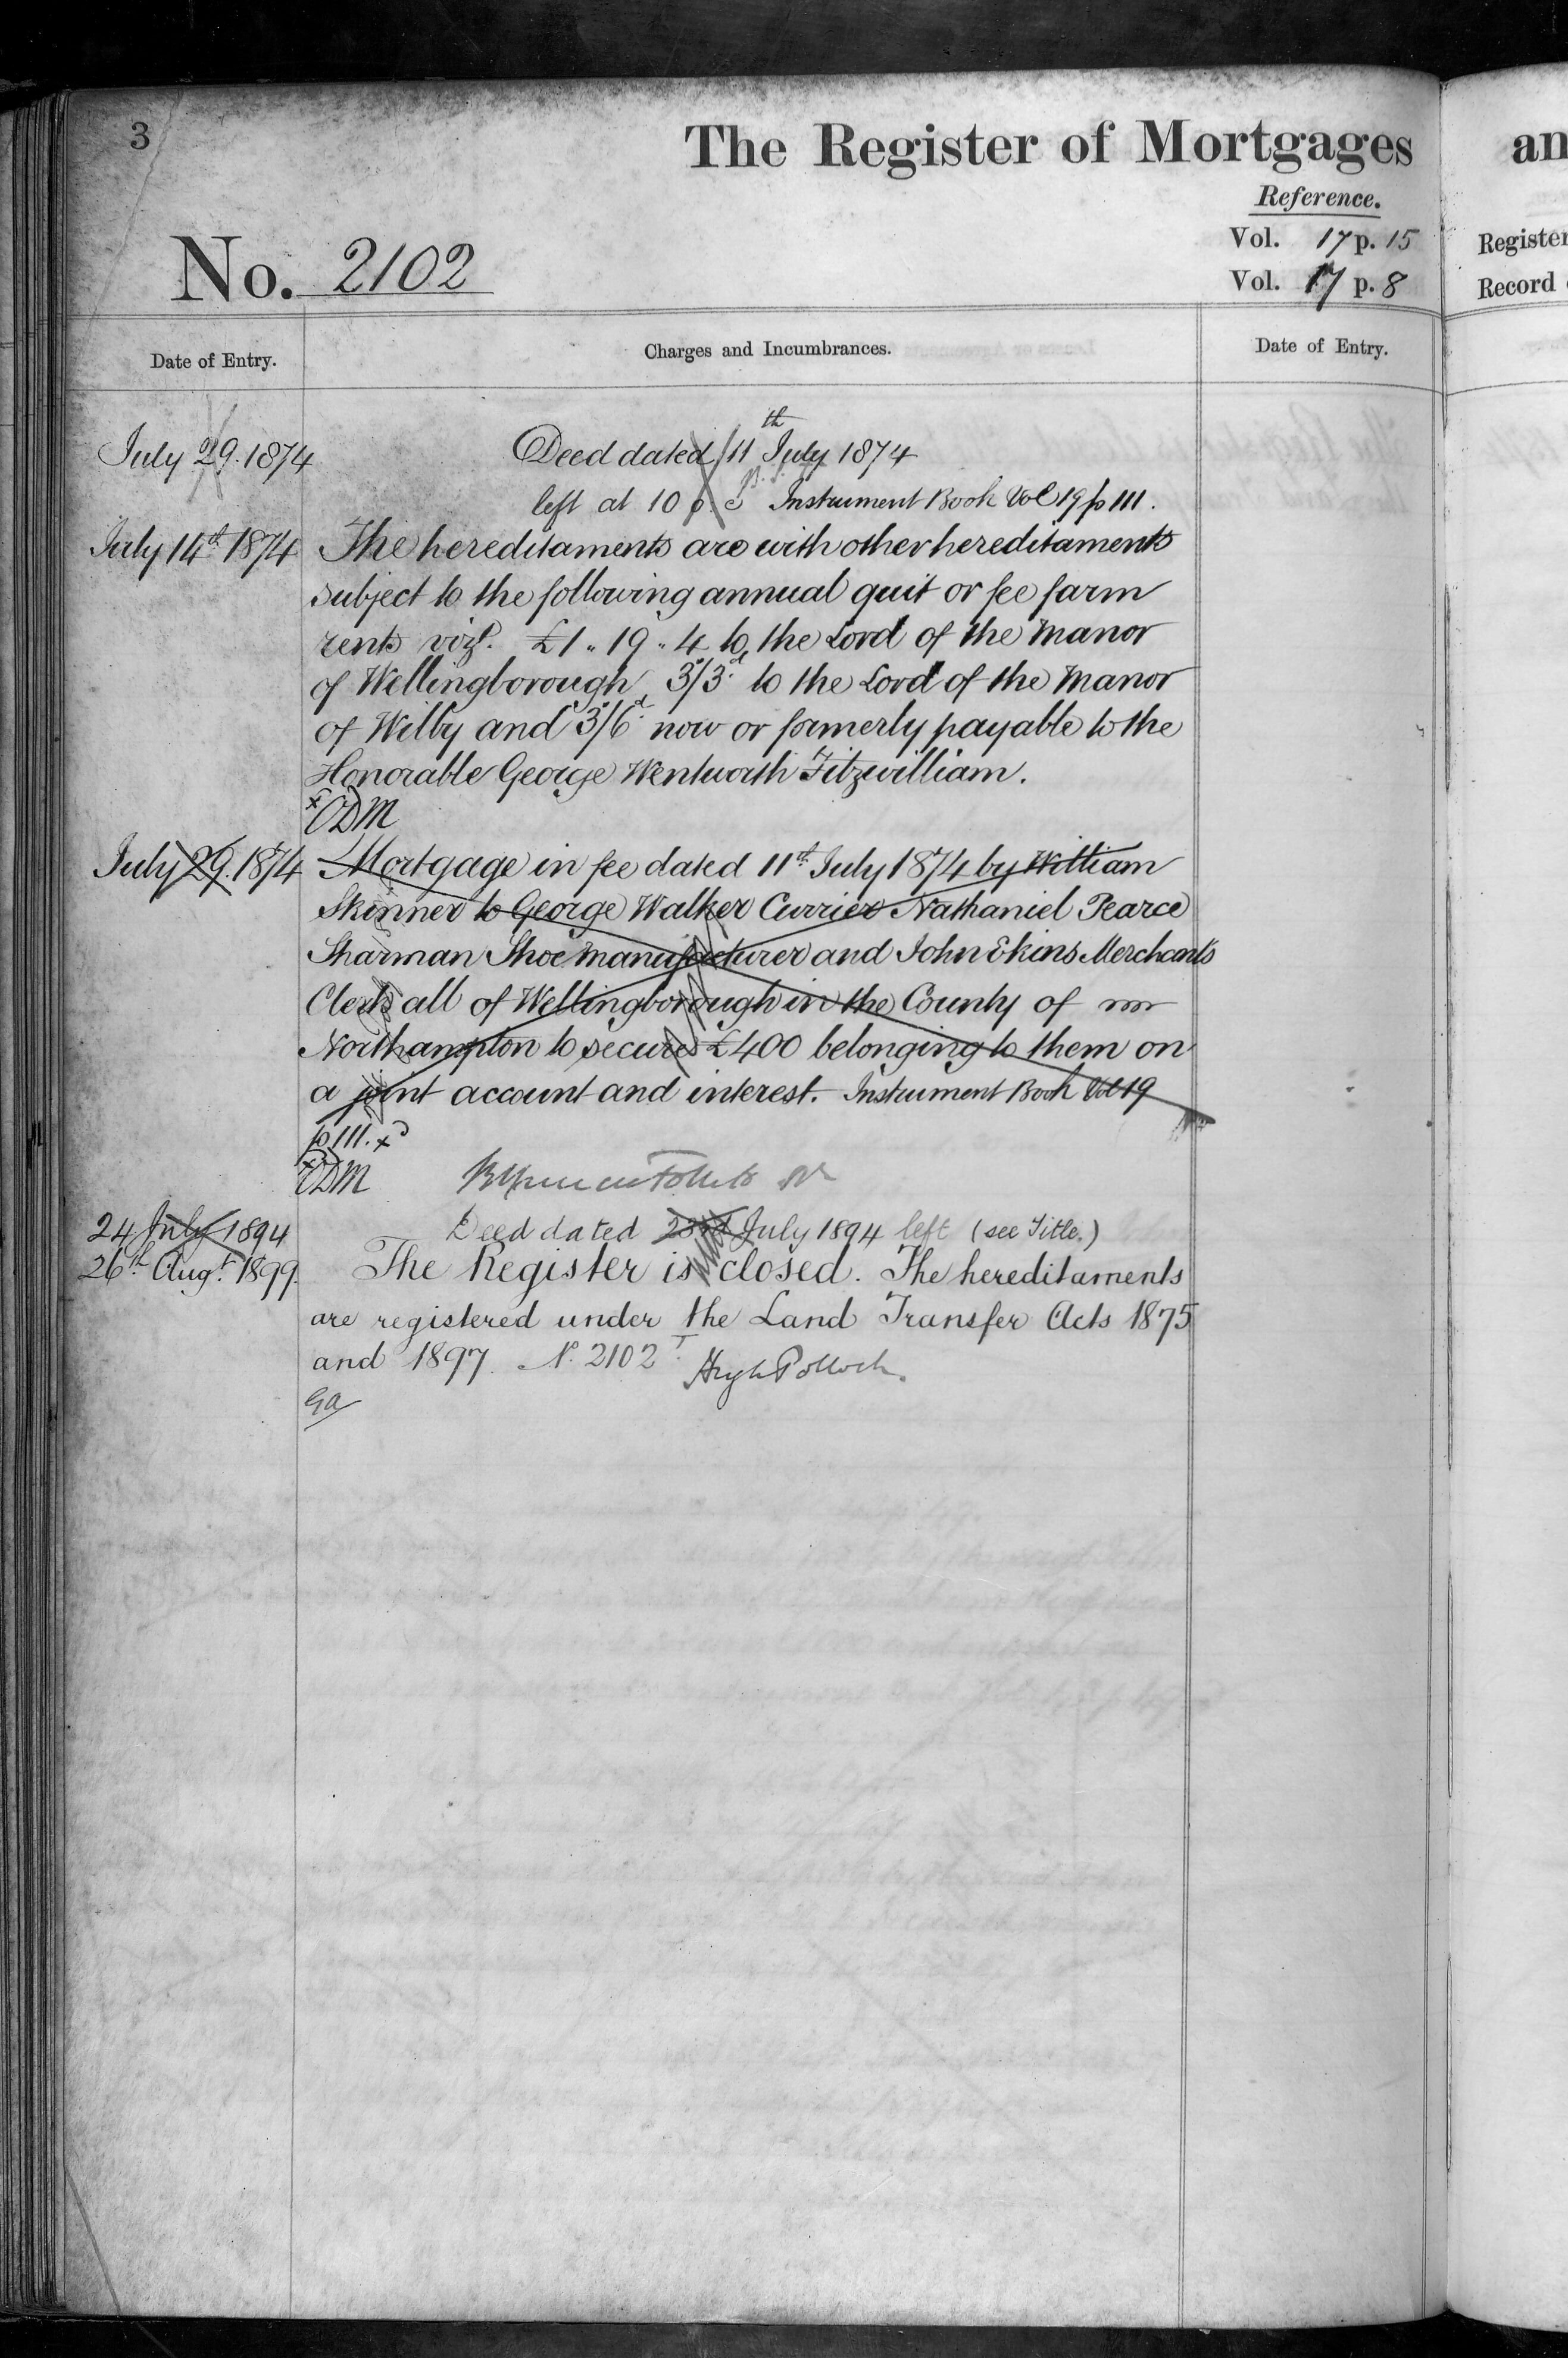 3
The Register of Mortgages
an
Reference.
No. 2102
Vol. 17 p. 15
Register
Vol. 17 p. 8
Record
Date of Entry.
Charges and Incumbrances.
Date of Entry.
July 29. 1874 Deed dated 11th July 1874
left at 10 Instrument Book Vol 19 p 111.
July 14th 1874 The hereditaments are with other hereditaments
subject to the following annual quit or fee farm
rents vizt. £1 " 19 " 4 to the Lord of the Manor
of Wellingborough 3s/3d. to the Lord of the Manor
of Wilby and 3s/6d. now or formerly payable to the
Honorable George Wentworth Fitzwilliam.
x ODM
July 29. 1874 Mortgage in fee dated 11th July 1874 by William
Skinner to George Walker Currier Nathaniel Pearce
Sharman Shoe Manufacturer and John Ekins Merchants
Clerk all of Wellingborough in the County of
Northampton to secure £400 belonging to them on
a joint account and interest. Instrument Book Vol 19
p 111. x
x ODM
24 July 1894 Deed dated 23rd July 1894 left (see Title.)
26th Augt. 1899. The Register is closed. The hereditaments
are registered under the Land Transfer Acts 1875
and 1897. No. 2102 Hugh Pollock.
GA